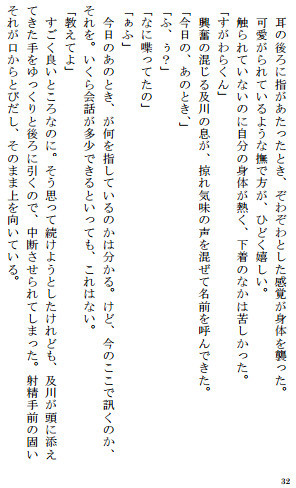 耳の後ろに指があたったとき、ぞわぞわとした感覚が身体を襲った。
可愛がられているような撫で方が、ひどく嬉しい。
触られていないのに自分の身体が熱く、下着のなかは苦しかった。
「すがわらくん」
興奮の混じる及川の息が、掠れ気味の声を混ぜて名前を呼んできた。
「今日の、あのとき、」
「ふ、ぅ？」
「なに喋ってたの」
「ぁふ」
今日のあのとき、が何を指しているのかは分かる。けど、今のここで訊くのか、
それを。いくら会話が多少できるといっても、これはない。
「教えてよ」
すごく良いところなのに。そう思って続けようとしたけれども、及川が頭に添え
てきた手をゆっくりと後ろに引くので、中断させられてしまった。射精手前の固い
それが口からとびだし、そのまま上を向いている。
32